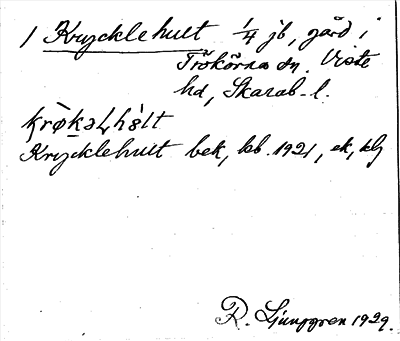 1 Krycklehult 1/4 jb, gård i
Trökörna sn. Viste
hd, Skarab. l.
krø̀kəɭhált
Krycklehult bek, kb. 1921, ek, klj
R. Ljunggren 1929.